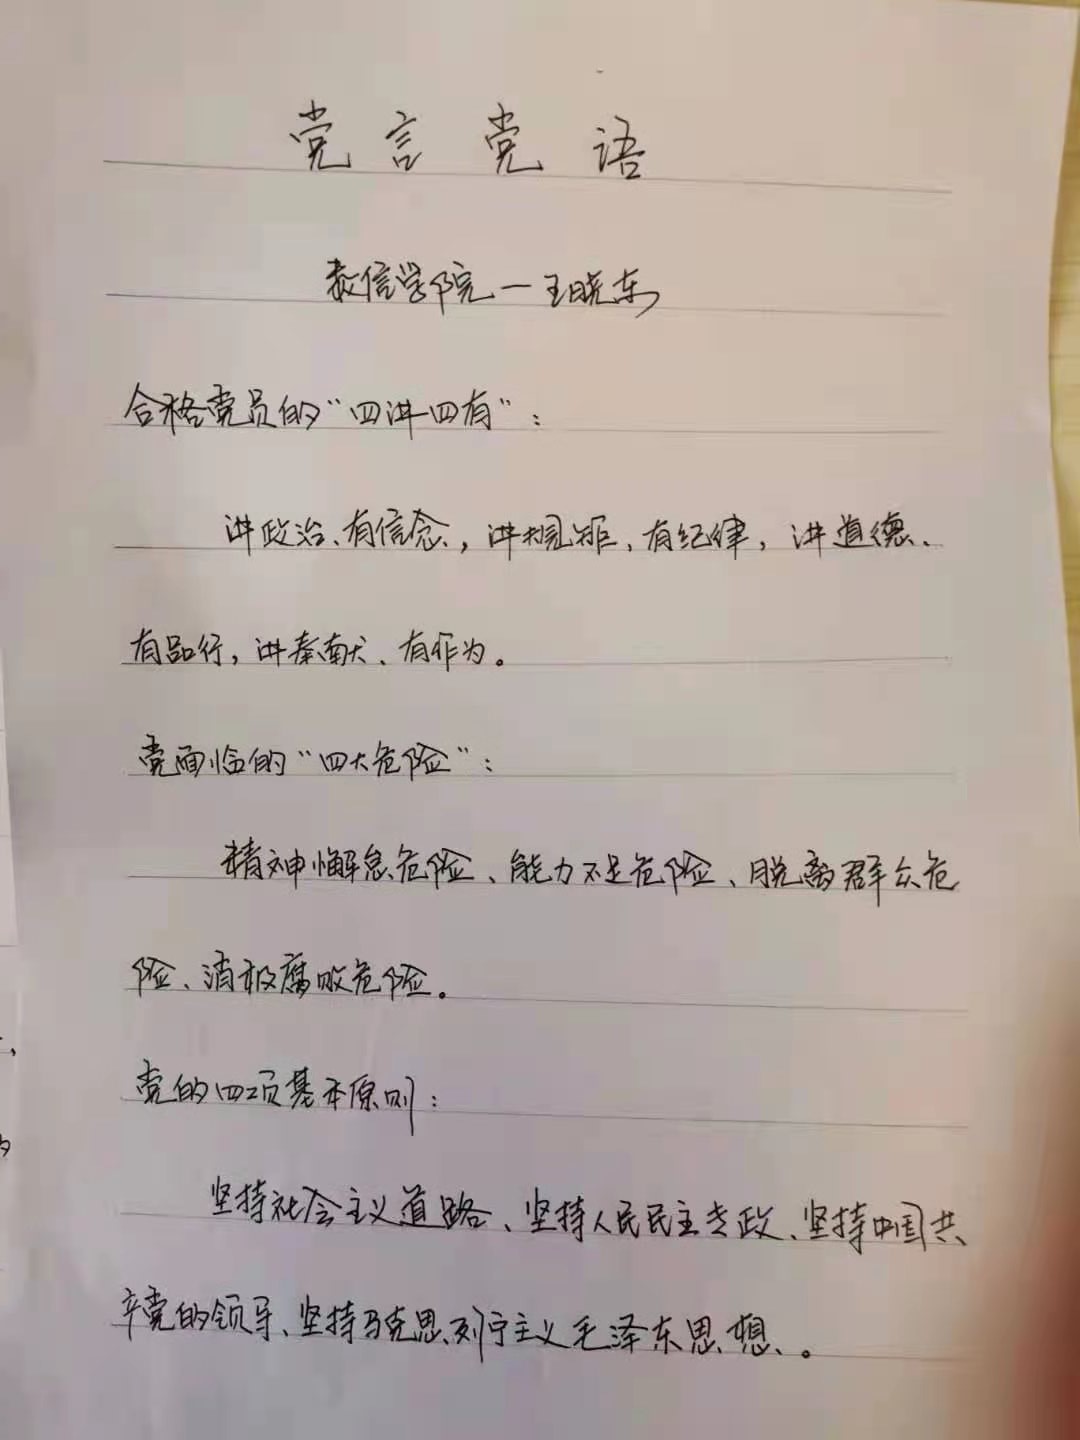 党言党语
数信学院一王晓东
合格党员的“四讲四有”：
讲政治、有信念，讲规矩、有纪律，讲道德、
有品行，讲奉献、有作为。
党面临的“四大危险”：
精神懈怠危险、能力不足危险、脱离群众危
险、消极腐败危险。
党的四项基本原则：
坚持社会主义道路、坚持人民民主专政、坚持中国共
产党的领导、坚持马克思列宁主义毛泽东思想、。